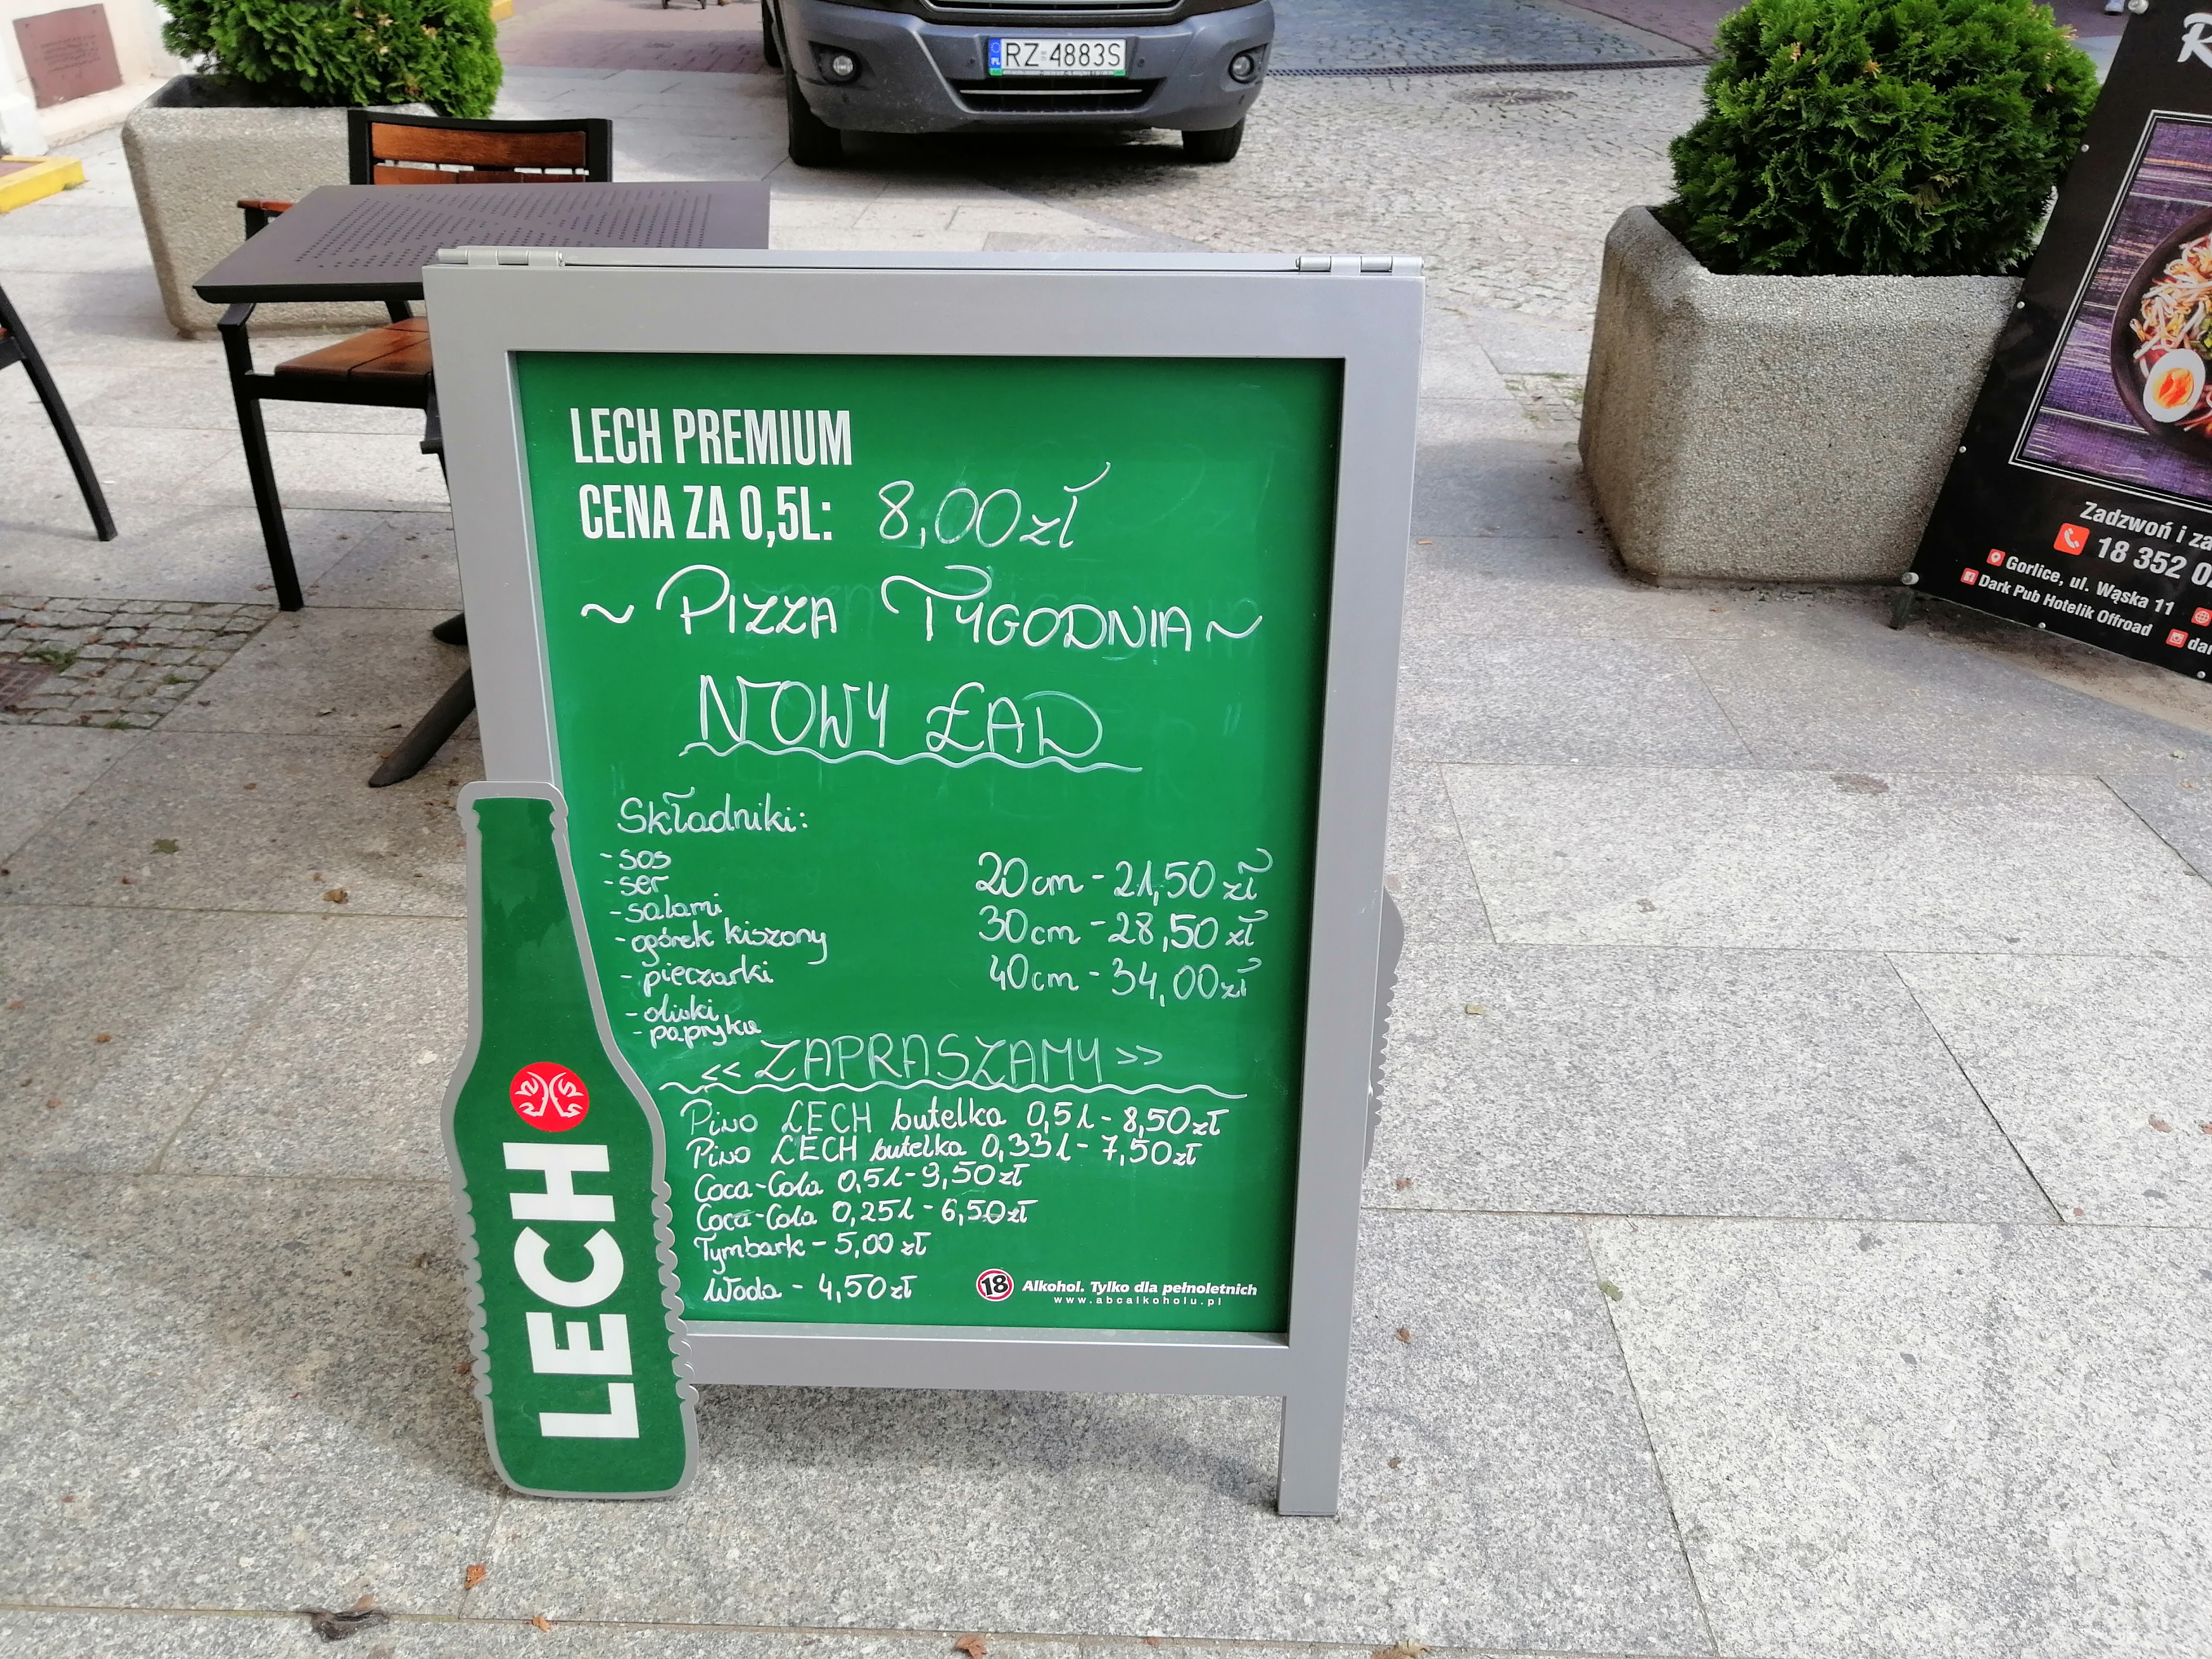 RZ 4883S
PL
LECH PREMIUM
CENA ZA 0,5L: 8,00zł
~ PIZZA TYGODNIA ~
NOWY ŁAD
Składniki:
- sos
- ser
- salami
- ogórek kiszony
- pieczarki
- oliwki
- papryka
20cm - 21,50 zł
30cm - 28,50 zł
40cm - 34,00zł
<< ZAPRASZAMY >>
Piwo LECH butelka 0,5l - 8,50zł
Piwo LECH butelka 0,33l - 7,50zł
Coca-Cola 0,5l - 9,50zł
Coca-Cola 0,25l - 6,50zł
Tymbark - 5,00 zł
Woda - 4,50zł
18 Alkohol. Tylko dla pełnoletnich
www.abcalkoholu.pl
LECH
Zadzwoń i za
18 352 0
Gorlice, ul. Wąska 11
Dark Pub Hotelik Offroad